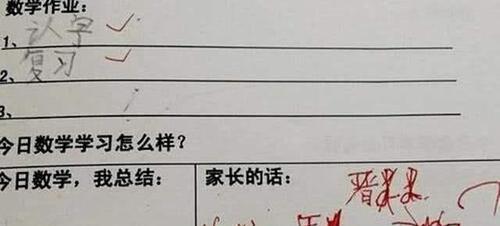 数学作业：
1、认字
2、复习
3、
今日数学学习怎么样？
今日数学，我总结： 家长的话：